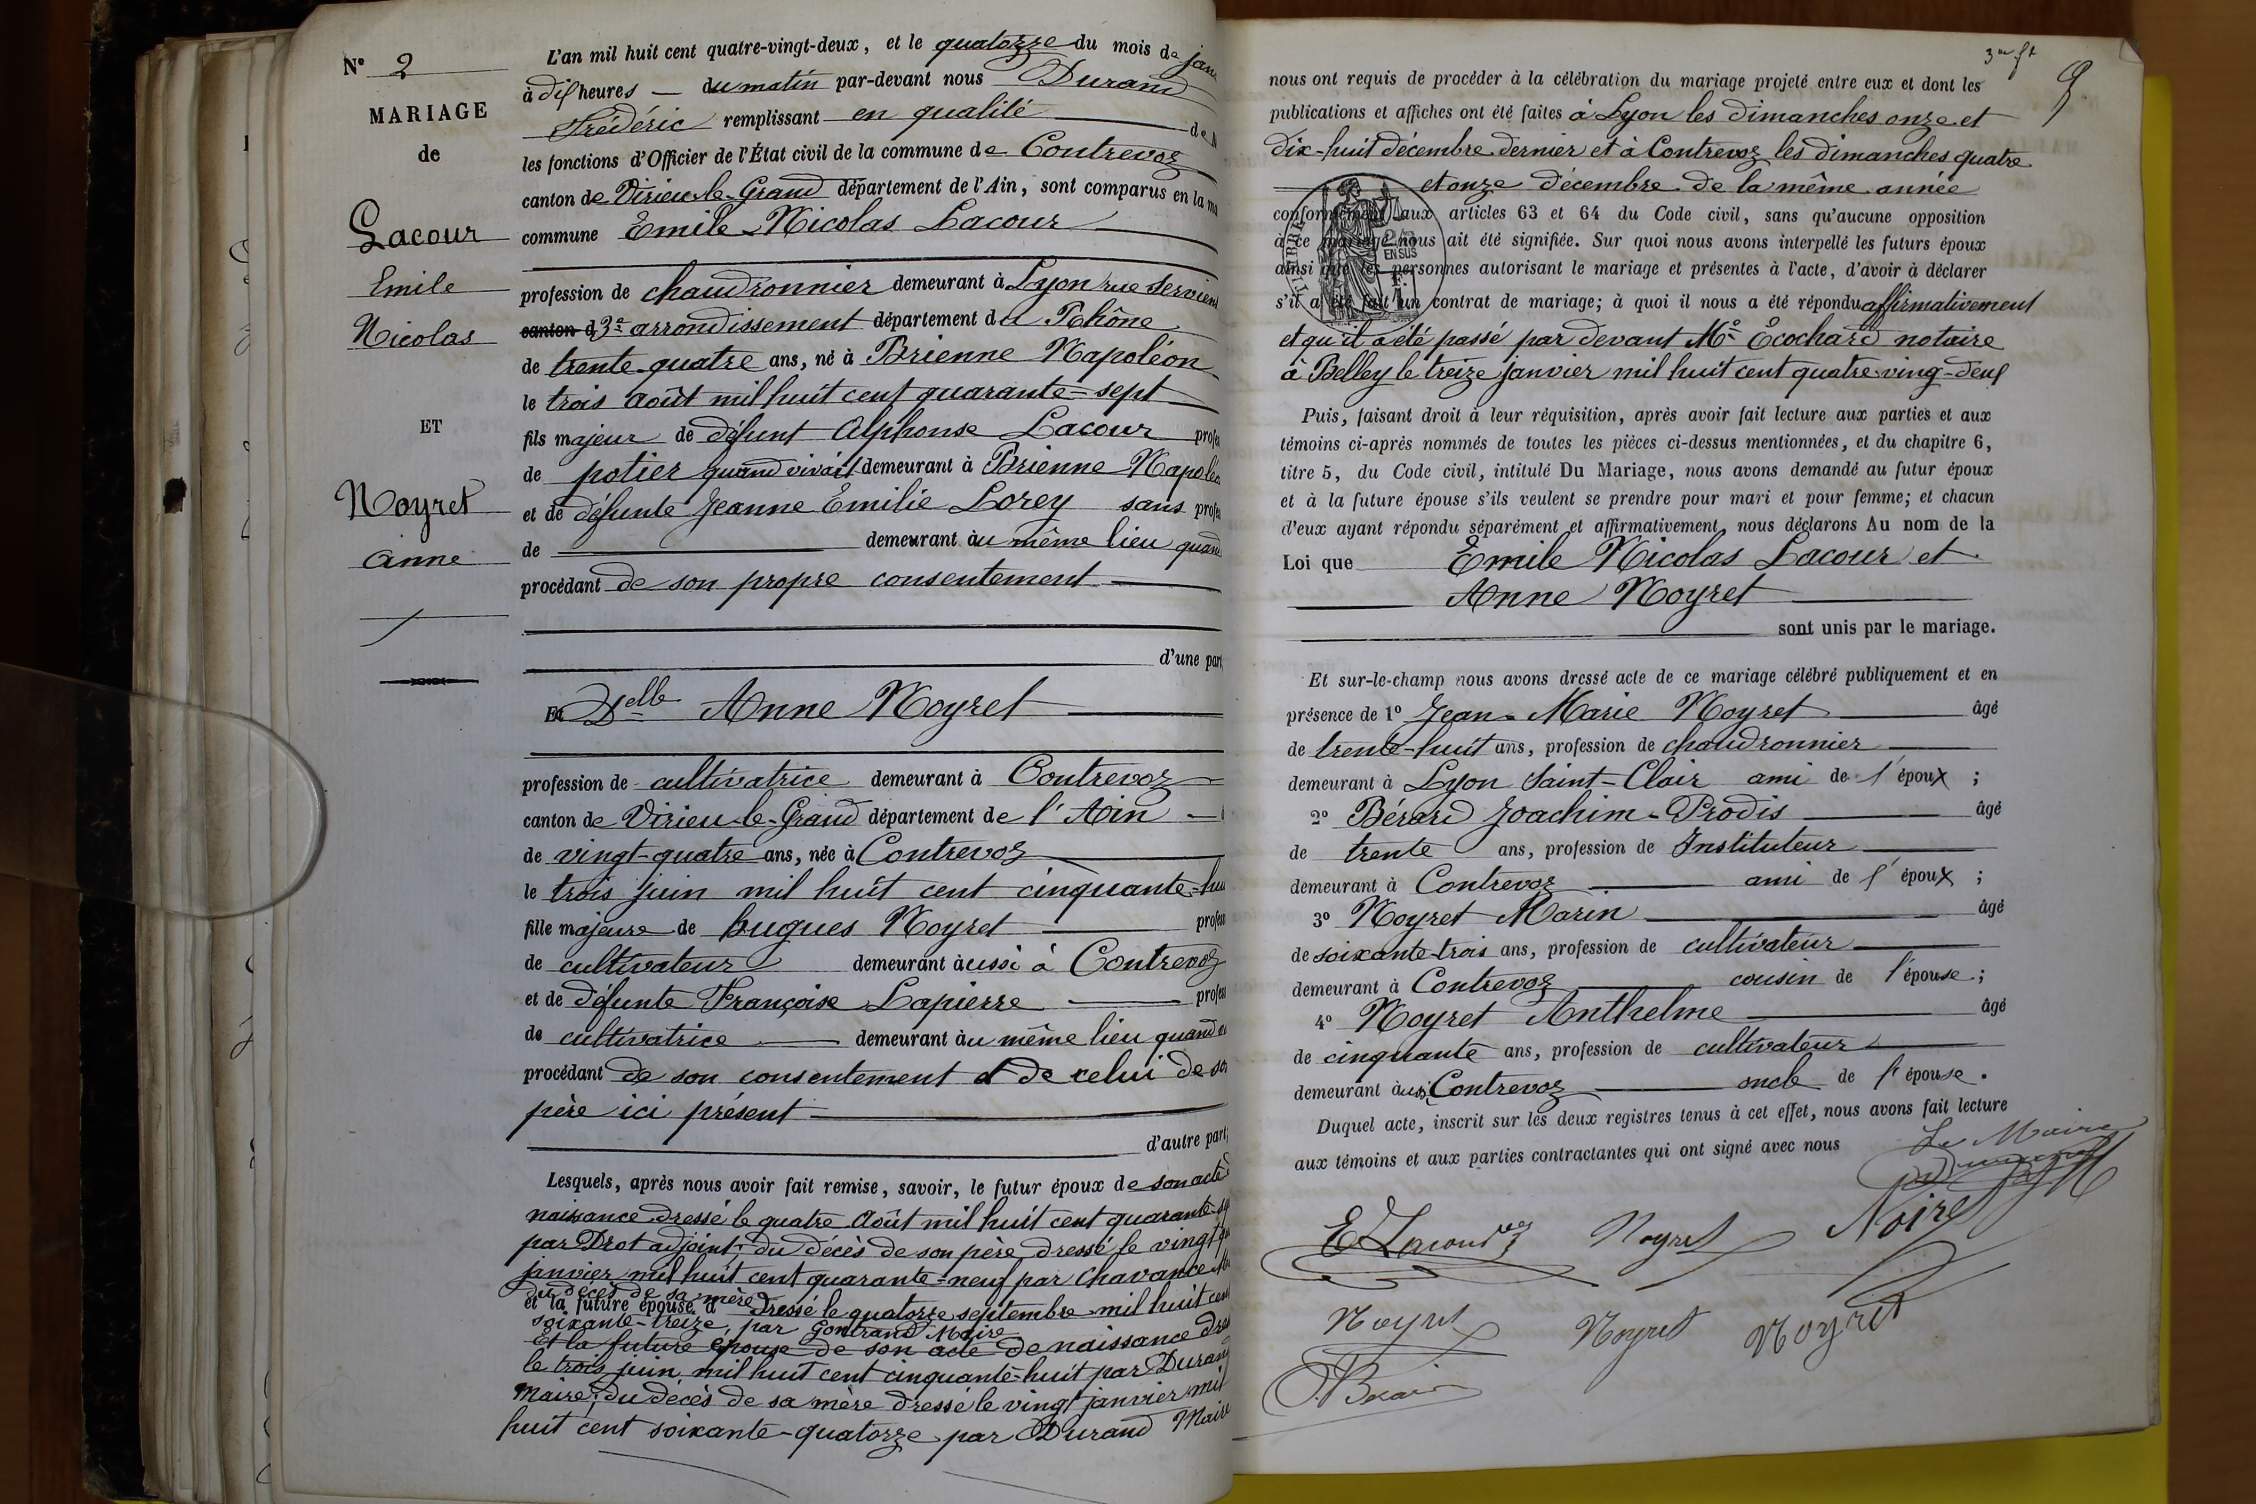 N° 2
MARIAGE
de
Lacour
Emile
Nicolas
ET
Noyret
Anne
L'an mil huit cent quatre-vingt-deux, et le quatorze du mois de janv
à dix heures du matin par-devant nous Durand
Frédéric remplissant en qualité de M
les fonctions d'Officier de l'État civil de la commune de Contrevoz
canton de Virieu-le-Grand département de l'Ain, sont comparus en la ma
commune Emile Nicolas Lacour
profession de chaudronnier demeurant à Lyon rue Servient
canton d 3e arrondissement département du Rhône
de trente-quatre ans, né à Brienne Napoléon
le trois août mil huit cent quarante-sept
fils majeur de défunt Alphonse Lacour profes
de potier quand vivait demeurant à Brienne Napoléo
et de défunte Jeanne Emilie Lorey sans profes
de demeurant au même lieu quand
procédant de son propre consentement
d'une part,
Et Delle Anne Noyret
profession de cultivatrice demeurant à Contrevoz
canton de Virieu-le-Grand département de l'Ain
de vingt-quatre ans, née à Contrevoz
le trois juin mil huit cent cinquante-hui
fille majeure de hugues Noyret profess
de cultivateur demeurant aussi à Contrevoz
et de défunte Françoise Lapierre profess
de cultivatrice demeurant au même lieu quand
procédant de son consentement et de celui de so
père ici présent
d'autre part;
Lesquels, après nous avoir fait remise, savoir, le futur époux de son acte d
naissance dressé le quatre Août mil huit cent quarante-s
par Drot adjoint; du décès de son père dressé le vingt
janvier mil huit cent quarante-neuf par Chavance
du décès de sa mère
et la future épouse d dressé le quatorze septembre mil huit cent
soixante-treize par Gontrand Maire
Et la future épouse de son acte de naissance dres
le trois juin mil huit cent cinquante-huit par Durand
Maire; du décès de sa mère dressé le vingt janvier mil
huit cent soixante-quatorze par Durand Maire
nous ont requis de procéder à la célébration du mariage projeté entre eux et dont les
publications et affiches ont été faites à Lyon les dimanches onze et
dix-huit décembre dernier et à Contrevoz les dimanches quatre
et onze décembre de la même année
conformément aux articles 63 et 64 du Code civil, sans qu'aucune opposition
à ce mariage nous ait été signifiée. Sur quoi nous avons interpellé les futurs époux
ainsi que les personnes autorisant le mariage et présentes à l'acte, d'avoir à déclarer
s'il a été fait un contrat de mariage; à quoi il nous a été répondu affirmativement
et qu'il a été passé par devant Me Ecochard notaire
à Belley le treize janvier mil huit cent quatre-ving-deux
Puis, faisant droit à leur réquisition, après avoir fait lecture aux parties et aux
témoins ci-après nommés de toutes les pièces ci-dessus mentionnées, et du chapitre 6,
titre 5, du Code civil, intitulé Du Mariage, nous avons demandé au futur époux
et à la future épouse s'ils veulent se prendre pour mari et pour femme; et chacun
d'eux ayant répondu séparément et affirmativement, nous déclarons Au nom de la
Loi que Emile Nicolas Lacour et
Anne Noyret
sont unis par le mariage.
Et sur-le-champ nous avons dressé acte de ce mariage célébré publiquement et en
présence de 1° Jean-Marie Noyret âgé
de trente-huit ans, profession de chaudronnier
demeurant à Lyon Saint-Clair ami de l'époux ;
2° Bérard Joachim-Prodis âgé
de trente ans, profession de Instituteur
demeurant à Contrevoz ami de l'époux ;
3° Noyret Marin âgé
de soixante-trois ans, profession de cultivateur
demeurant à Contrevoz cousin de l'épouse ;
4° Noyret Anthelme âgé
de cinquante ans, profession de cultivateur
demeurant aussi Contrevoz oncle de l'épouse.
Duquel acte, inscrit sur les deux registres tenus à cet effet, nous avons fait lecture
aux témoins et aux parties contractantes qui ont signé avec nous
Le Maire
E Lacour Noyret Noiret
Noyret Noyret Noyret